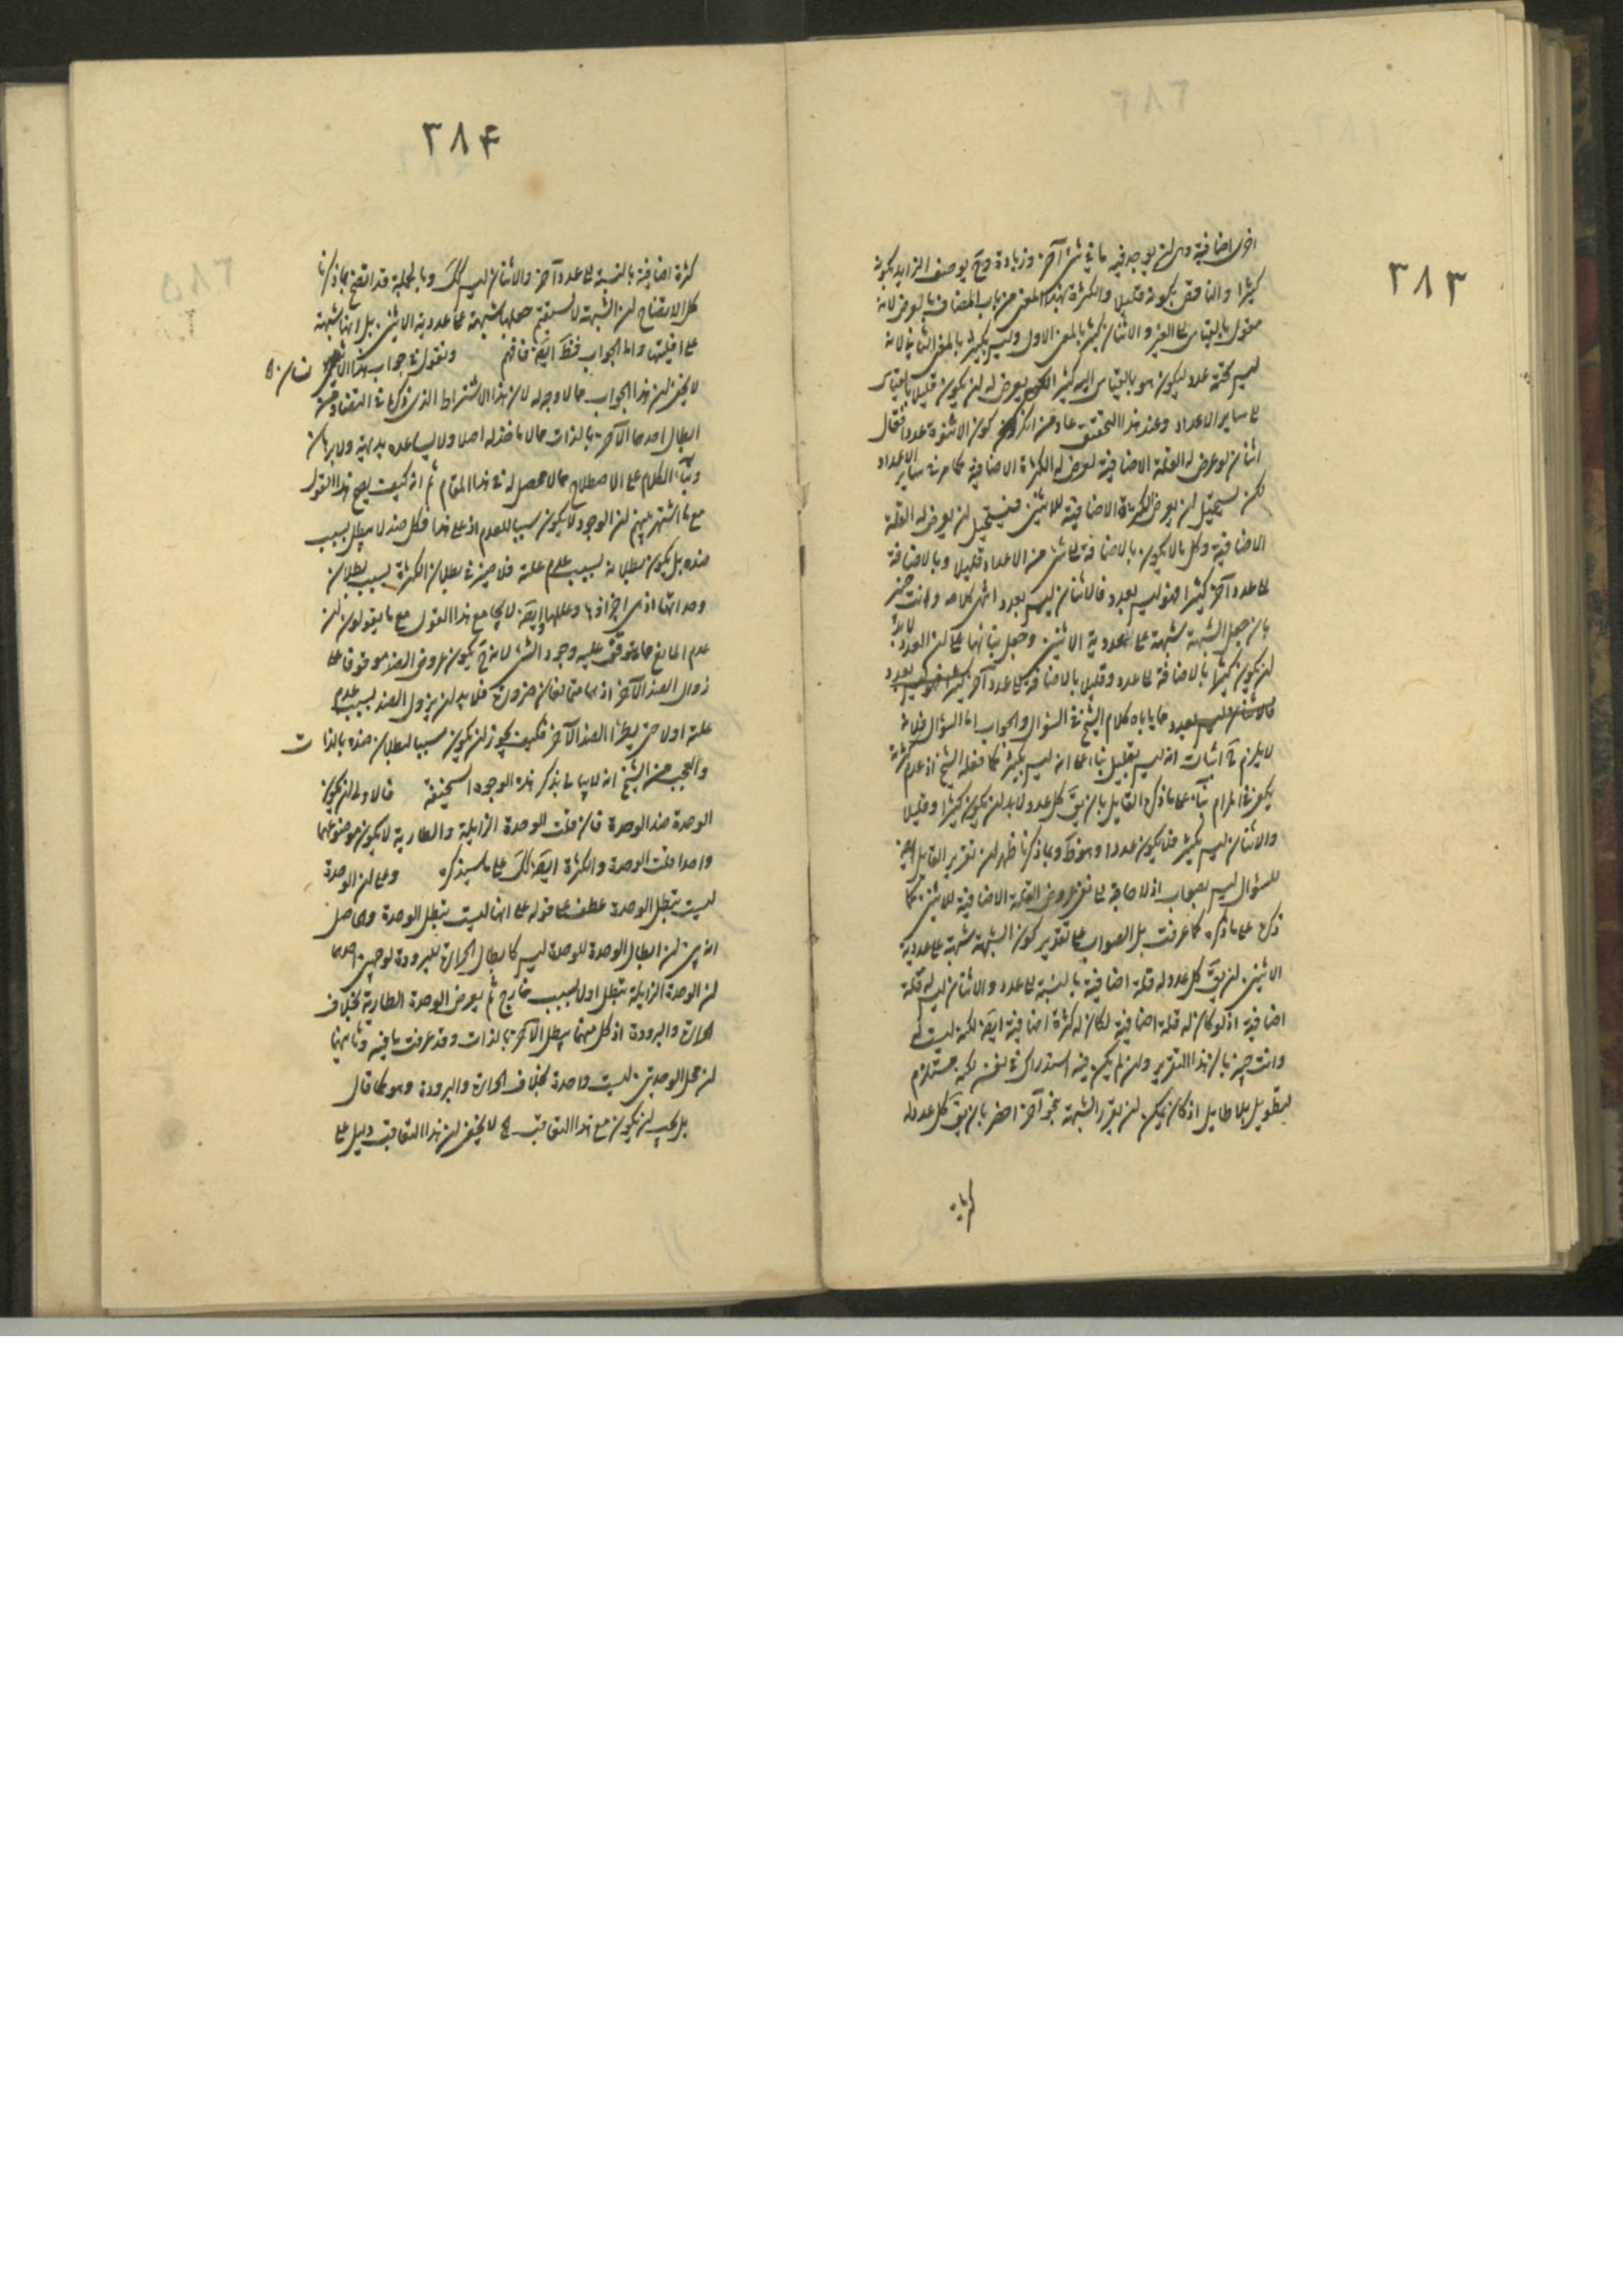 ٣٨٣
اخرى اضافية وهى ان يوجد فيه ما فى شئ آخر وزيادة وح يوصف الزايد بكونه
كثيرا والناقص بكونه قليلا والكثرة بهذا المعنى من باب المضاف بالعرض لانه
مقول بالقياس الى الغير والاثنان كثير بالمعنى الاول وليس بكثير بالمعنى الثانى لانه
ليس تحته عدد ليكون هو بالقياس اليه كثيرا لكن يعرض له ان يكون قليلا بالقياس
الى ساير الاعداد وعند هذا التحقيق عاد من انكر كون الاثنوة عددا فقال
اثنان لو عرض له القلة الاضافية لعرض له الكثرة الاضافية كما مر فى ساير الاعداد
لكن يستحيل ان يعرض الكثرة الاضافية للاثنين فيستحيل ان يعرض له القلة
الاضافية وكل ما لا يكون بالاضافة الى شئ من الاعداد قليلا وبالاضافة
الى عدد آخر كثيرا فهو ليس بعدد فالاثنان ليس بعدد انتهى كلامه وانت خبير
بان جعل الشبهة شبهة على عددية الاثنين وجعل بنائها على ان العدد لابد
ان يكون كثيرا بالاضافة الى عدد وقليلا بالاضافة الى عدد آخر
مما ياباه كلام الشيخ فى السؤال والجواب اما السؤال فلانه
لا يلزم ح اثبات انه ليس بقليل بناء على انه ليس بكثير كما فعله الشيخ اذ عدم كثرته
يكفى فى المرام بناء على ما ذكره القايل بان يق كل عدد لابد ان يكون كثيرا وقليلا
والاثنان ليس بكثير فلا يكون عددا وهو ظ وبما ذكرنا ظهر ان تقرير القايل
للسؤال ليس بصواب اذ لا حاجة الى نفى عروض القلة الاضافية للاثنين كما
ذكره على ما ذكره كما عرفت بل الصواب على تقدير كون الشبهة شبهة على عددية
الاثنين ان يق كل عدد له قلة اضافية بالنسبة الى عدد والاثنان ليس له قلة
اضافية اذ لو كان له قلة اضافية لكان له كثرة اضافية ايضا لكنه ليست له
وانت خبير بان هذا التقرير وان لم يكن فيه استدراك فى نفسه لكنه مستلزم
لتطويل بلا طايل اذ كان يمكن ان يقرر الشبهة بنحو آخر اخصر بان يق كل عدد له
٣٨٤
كثرة اضافية بالنسبة الى عدد آخر والاثنان ليس كك وبالجملة قد اتضح بما ذكرنا
كل الاتضاح ان الشبهة لا يستقيم جعلها شبهة على عددية الاثنين بل انها شبهة
على اقليتها واما الجواب فظ ايضا فافهم ونقول فى جواب هذا
لا يخفى ان هذا الجواب مما لا وجه له لان هذا الاشتراط الذى ذكره فى التضاد من
ابطال احدهما الآخر بالذات مما لا ماخذ له اصلا ولا يساعده بديهة ولا برهان
وبناء الكلام على الاصطلاح مما لا محصل له فى هذا المقام ثم انه كيف يصح هذا القول
مع ما اشتهر بينهم ان الوجود لا يكون سببا للعدم اذ على هذا فكل ضد لا يبطل بسبب
ضده بل يكون بطلانه بسبب عدم علته فلا ضير فى بطلان الكثرة بسبب بطلان
وحداتها اذ هى اجزاؤها وعللها وايضا لا يجامع هذا القول مع ما يقولون ان
عدم المانع مما يتوقف عليه وجود الشئ لانه ح يكون عروض الضد موقوفا على
زوال الضد الآخر اذ هما متمانعان ضرورة فلابد ان يزول الضد بسبب عدم
علته اولا حتى يطرأ الضد الآخر فكيف يجوز ان يكون سببا لبطلان ضده بالذات
والعجب من الشيخ انه لا يبالى بذكر هذه الوجوه السخيفة قال ولان يكون
الوحدة ضد الوحدة فان قلت الوحدة الزايلة والطارية لا يكون موضوعهما
واحدا قلت الوحدة والكثرة ايضا كك على ما سيذكره وعلى ان الوحدة
ليست تبطل الوحدة عطف على قوله على انها ليست تبطل الوحدة وحاصل
ان ابطال الوحدة للوحدة ليس كابطال الحرارة للبرودة لوجهين احدهما
ان الوحدة الزايلة تبطل اولا بسبب خارج ثم يعرض الوحدة الطارية بخلاف
الحرارة والبرودة اذ كل منهما يبطل الآخر بالذات وقد عرفت ما فيه وثانيهما
ان محل الوحدتين ليست واحدة بخلاف الحرارة والبرودة وهو كما قال
بل يجب ان يكون مع هذا التعاقب الخ لا يخفى ان هذا التعاقب دليل على